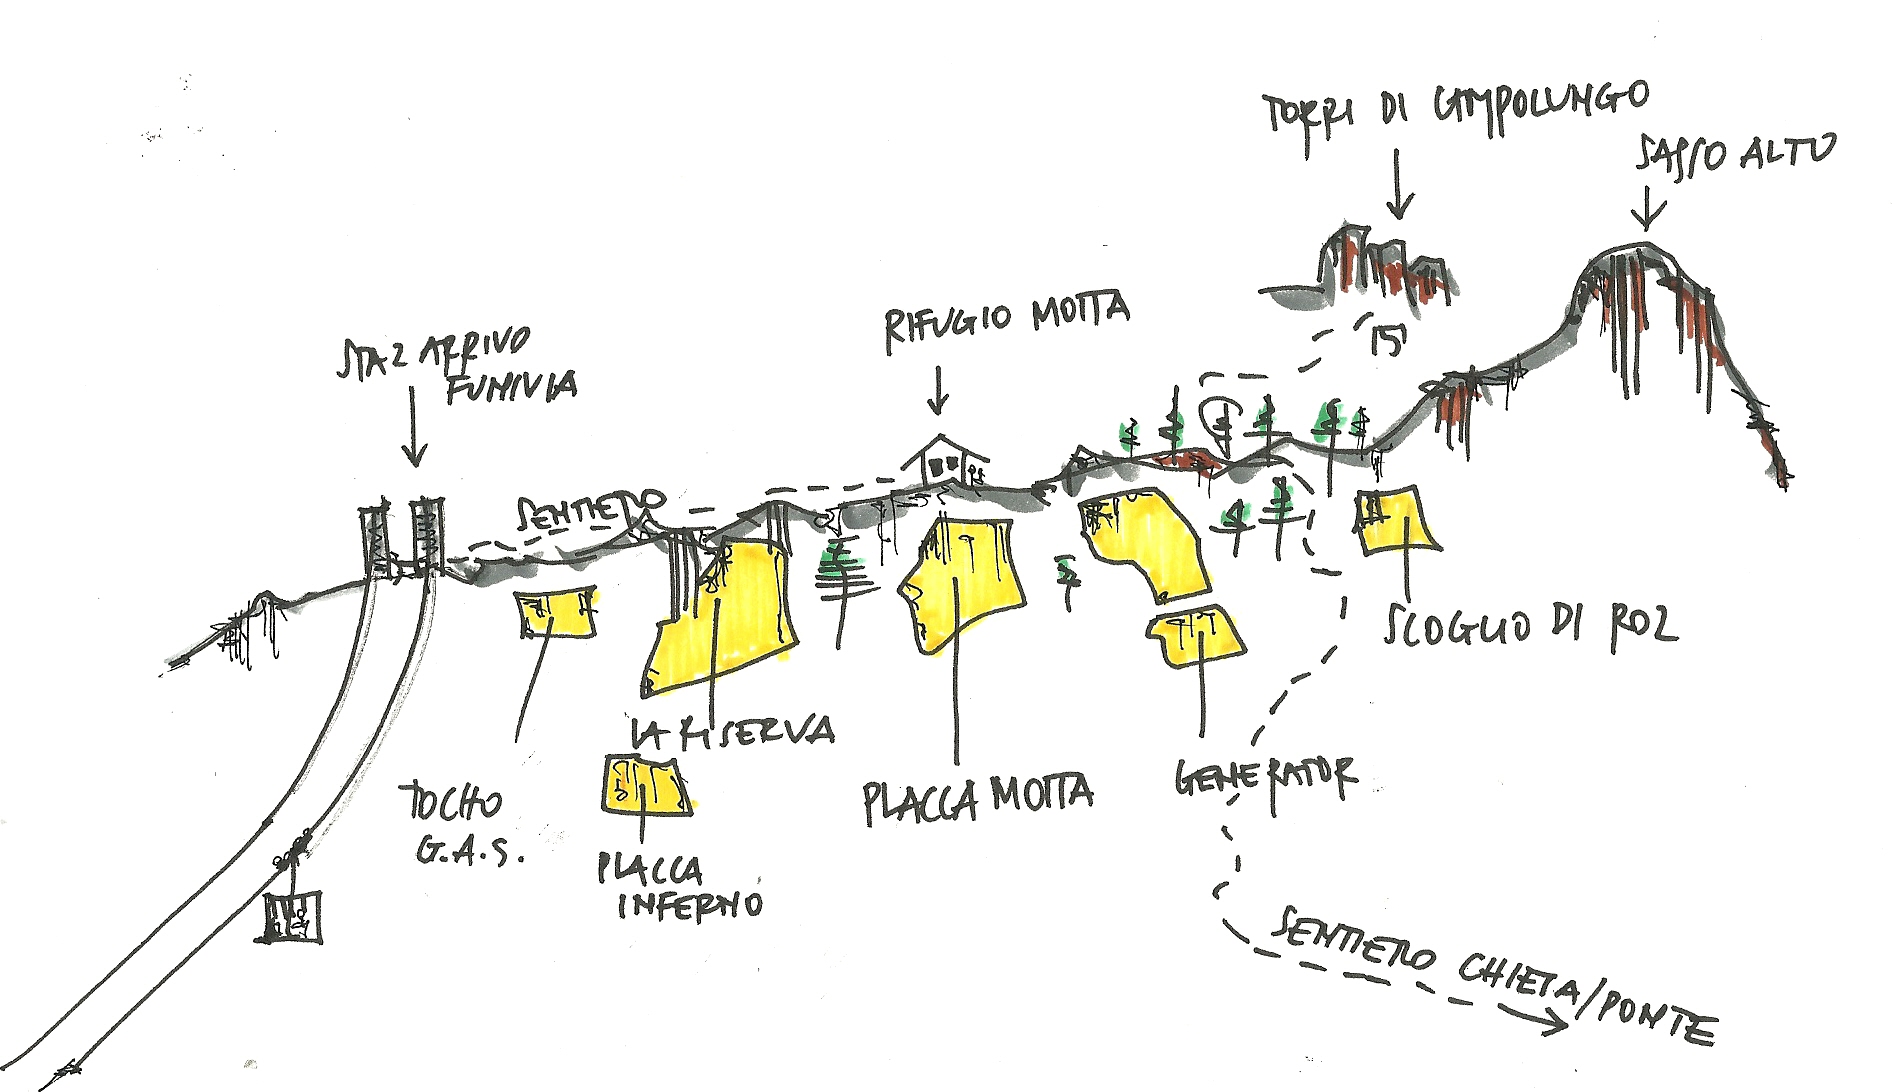 TORRI DI CAMPOLUNGO
SASSO ALTO
RIFUGIO MOTTA
15'
STAZ ARRIVO
FUNIVIA
SENTIERO
SCOGLIO DI ROZ
LA RISERVA
TOCHO
G.A.S.
PLACCA MOTTA
GENERATOR
PLACCA
INFERNO
SENTIERO CHIETA/PONTE